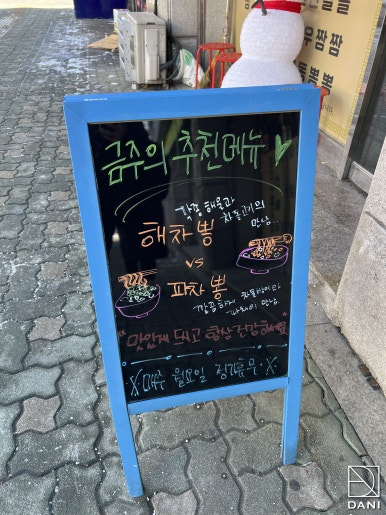 금주의 추천메뉴
각종 해물과
차돌고기의
만남..
해차뽕
vs
파차뽕
깔끔하게 차돌박이와
파채의 만남.
"맛있게 드시고 항상 건강하세요"
·X·매주 월요일 정기휴무·X·
DANI